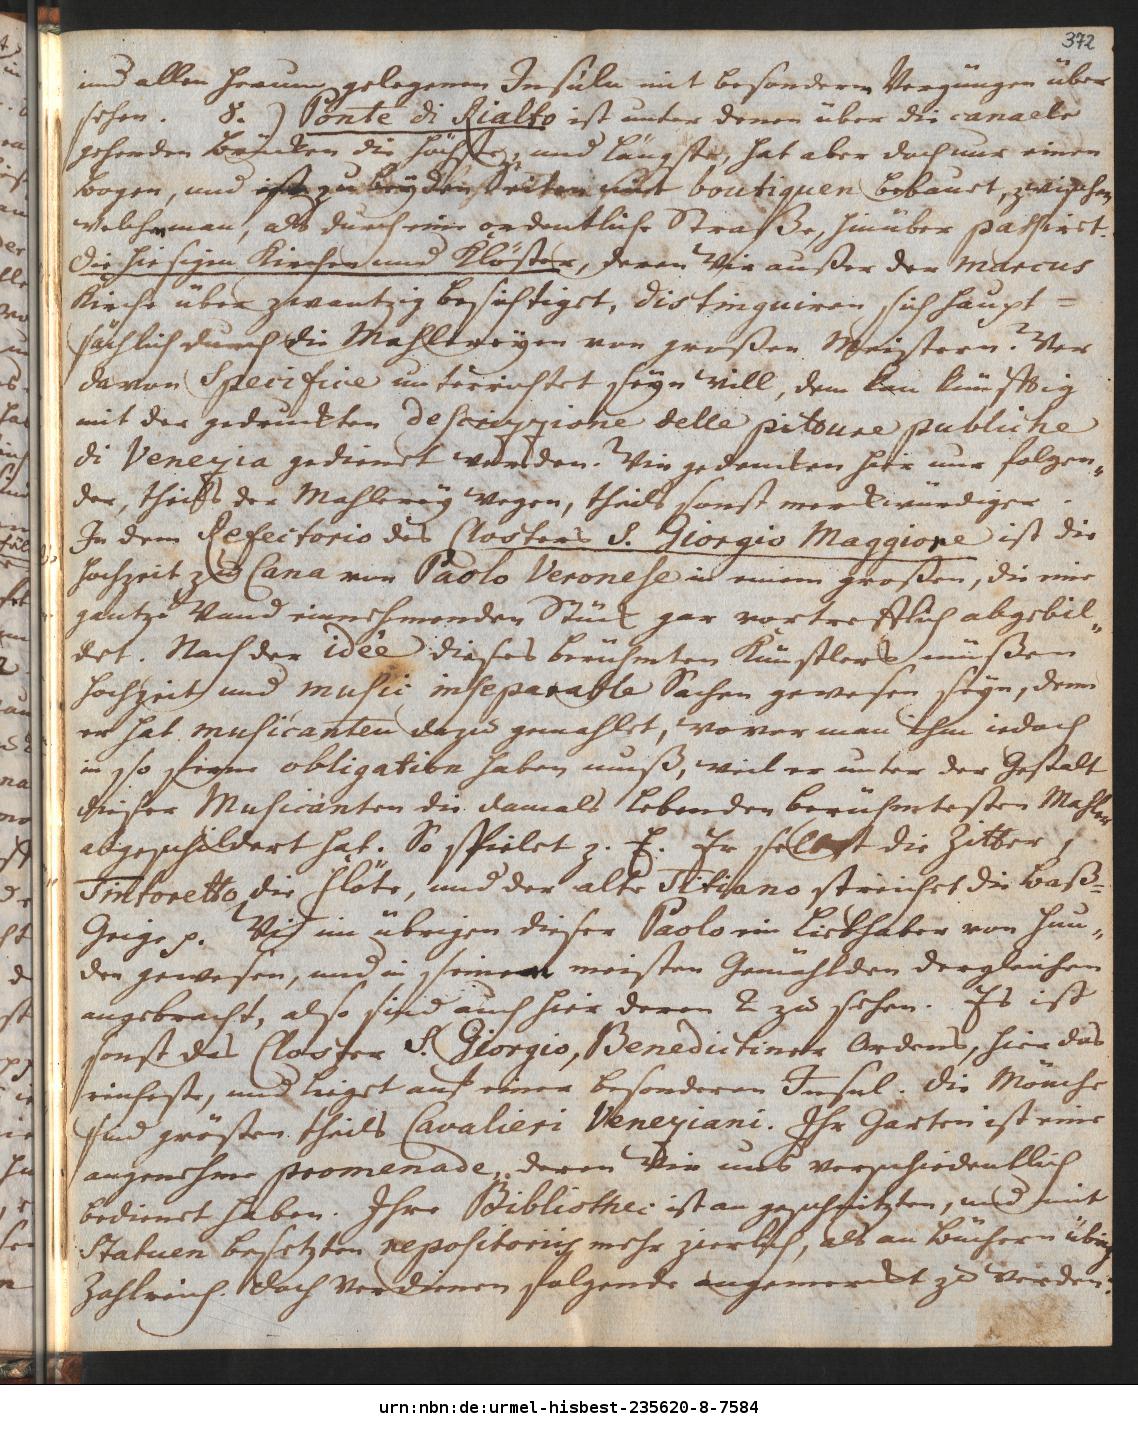 372
und allen herum gelegenen Insuln mit besonderen Vergnügen über
sehen. 8.) Ponte di Rialto ist unter denen über die canaele
gehenden Brücken die höchste, und längste, hat aber doch nur einen
Bogen, und ist zu beyden Seiten mit boutiquen bebauet, zwischen
welchen man, als durch eine ordentliche Straße, hinüber passirt.
Die hiesigen Kirchen und Klöster, deren Wir außer der Marcus
Kirche über zwantzig besichtiget, distinguiren sich haupt=
sächlich durch die Mahlereyen von großen Meistern. Wer
davon Specifice unterrichtet seyn will, dem kan künfftig
mit der gedruckten descrizzione delle pitture publiche
di Venezia gedienet werden. Wir gedencken hier nur folgen„
der, theils der Mahlerey wegen, theils sonst merckwürdiger.
In dem Refectorio des Closters S. Giorgio Maggiore ist die
Hochzeit zu Cana von Paolo Veronese in einem großen, die eine
gantze Wand einnehmenden Stück gar vortrefflich abgebil„
det. Nach der idée dieses berühmten Künstlers müßen
Hochzeit und music inseparable Sachen gewesen seyn, denn
er hat musicanten dazu gemahlet, wovor man ihm iedoch
in so ferne obligation haben muß, weil er unter der Gestalt
dieser Musicanten die damals lebenden berühmtesten Mahler
abgeschildert hat. So spielet z. E. Er selbst die Zitter,
Tintoretto die Flöte, und der alte Titiano streichet die Baß=
Geige p. Wie im übrigen dieser Paolo ein Liebhaber von Hun„
den gewesen, und in seinen meisten Gemählden dergleichen
angebracht, also sind auch hier deren 2 zu sehen. Es ist
sonst das Closter S. Giorgio, Benedictiner Ordens, hier das
reicheste, und lieget auf einer besonderen Insul. Die Mönche
sind grösten theils Cavalieri Veneziani. Ihr Garten ist eine
angenehme promenade, deren Wir uns verschiedentlich
bedienet haben. Ihre Bibliothec ist an geschnitzten, und mit
Statuen besetzten repositoriis mehr zierlich, als an Büchern übrig
Zahlreich. Doch verdienen folgende angemerckt zu werden:
urn:nbn:de:urmel-hisbest-235620-8-7584